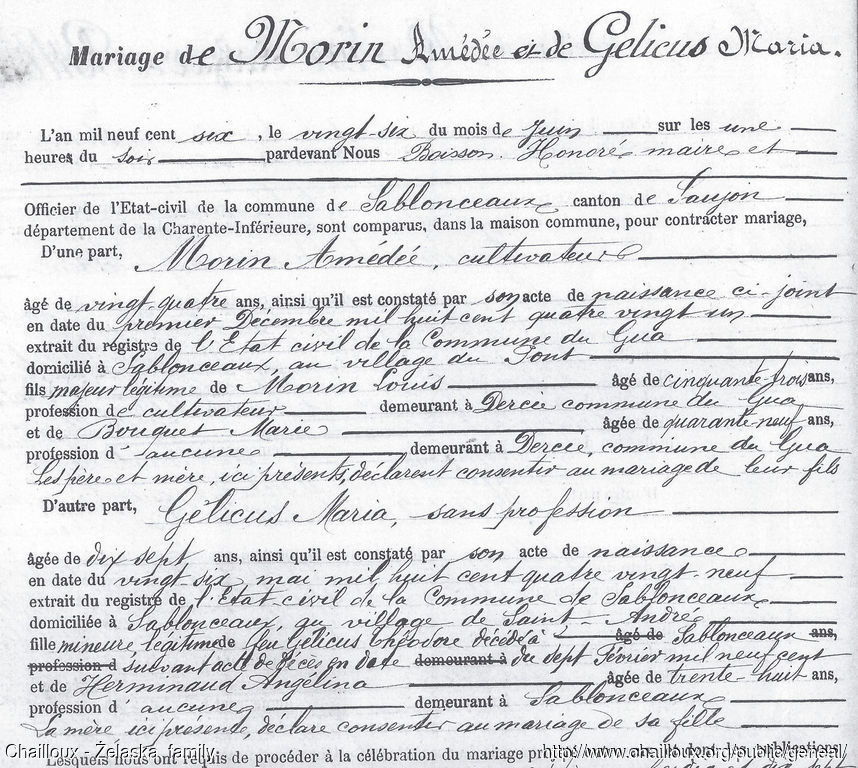 Mariage de Morin Amédée et de Gelicus Maria.
L'an mil neuf cent six, le vingt-six du mois de Juin sur les une
heures du soir pardevant Nous Boisson Honoré maire et
Officier de l'Etat-civil de la commune de Sablonceaux canton de Saujon
département de la Charente-Inférieure, sont comparus, dans la maison commune, pour contracter mariage,
D'une part, Morin Amédée, cultivateur
âgé de vingt-quatre ans, ainsi qu'il est constaté par son acte de naissance ci-joint
en date du premier Décembre mil huit cent quatre vingt un
extrait du régistre de l'Etat civil de la Commune du Gua
domicilié à Sablonceaux, au village du Pont
fils majeur légitime de Morin Louis âgé de cinquante-trois ans,
profession de cultivateur demeurant à Dercie commune du Gua
et de Bouquet Marie âgée de quarante-neuf ans,
profession d'aucune demeurant à Dercie, commune du Gua
Les père et mère, ici présents, déclarent consentir au mariage de leur fils
D'autre part, Gélicus Maria, sans profession
âgée de dix sept ans, ainsi qu'il est constaté par son acte de naissance
en date du vingt-six mai mil huit cent quatre vingt-neuf
extrait du registre de l'Etat-civil de la Commune de Sablonceaux
domiciliée à Sablonceaux, au village de Saint-André
fille mineure légitime de feu Gélicus théodore décédé à âgé de Sablonceaux ans,
profession d suivant acte de décès en date demeurant à du sept Février mil neuf cent
et de Herminaud Angélina âgée de trente-huit ans,
profession d'aucune demeurant à Sablonceaux
La mère ici présente, déclare consentir au mariage de sa fille
Chailloux - Żelaska family http://www.chailloux.org/public/geneal/
Lesquels nous ont requis de procéder à la célébration du mariage publications